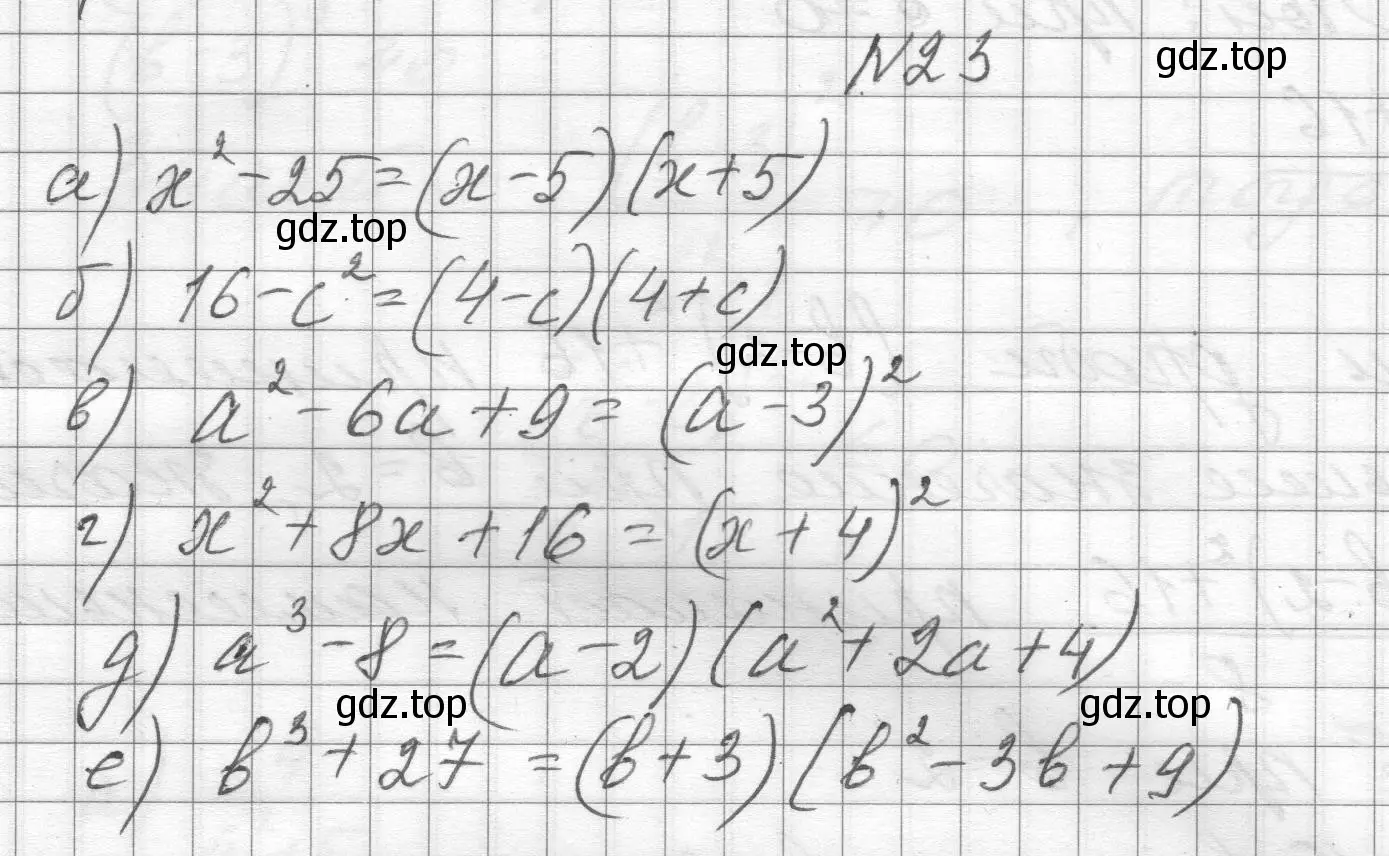 №23
gdz.top
а) x² - 25 = (x - 5)(x + 5)
gdz.top
б) 16 - c² = (4 - c)(4 + c)
gdz.top
в) a² - 6a + 9 = (a - 3)²
г) x² + 8x + 16 = (x + 4)²
д) a³ - 8 = (a - 2)(a² + 2a + 4)
gdz.top gdz.top
е) b³ + 27 = (b + 3)(b² - 3b + 9)